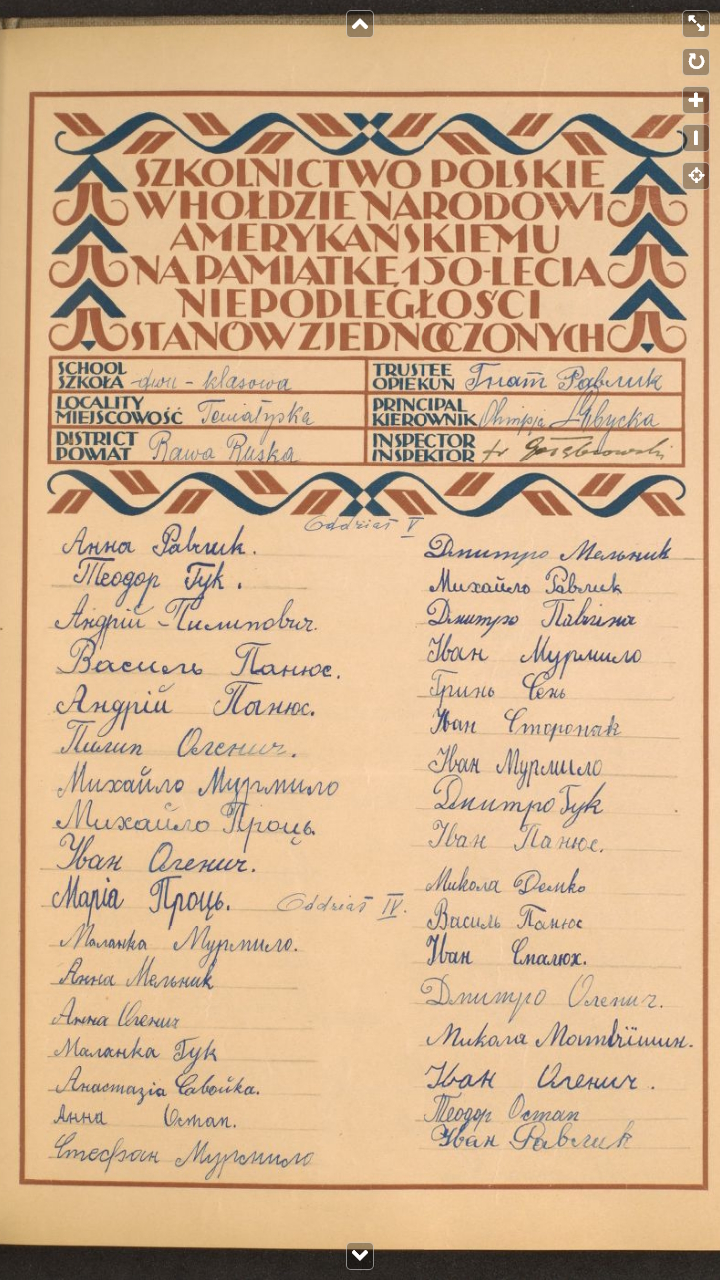 SZKOLNICTWO POLSKIE
W HOŁDZIE NARODOWI
AMERYKAŃSKIEMU
NA PAMIĄTKĘ 150-LECIA
NIEPODLEGŁOŚCI
STANÓW ZJEDNOCZONYCH
SCHOOL
SZKOŁA dwu - klasowa
TRUSTEE
OPIEKUN Гнат Равлик
LOCALITY
MIEJSCOWOŚĆ Teniatyska
PRINCIPAL
KIEROWNIK Olimpja
DISTRICT
POWIAT Rawa Ruska
INSPECTOR
INSPEKTOR
Oddział V
Анна Равлик.
Теодор Гук.
Андрій Пилипович.
Василь Панюс.
Андрій Панюс.
Пилип Оленич.
Михайло Мурмило
Михайло Проць
Іван Оленич.
Марія Проць.
Oddział IV.
Маланка Мурмило.
Анна Мельник
Анна Оленич
Маланка Гук
Анастазія Савойка.
Анна Остап.
Стефан Мурмило
Дмитро Мельник
Михайло Равлик
Дмитро
Іван Мурмило
Гринь Сень
Іван
Іван Мурмило
Дмитро Гук
Іван Панюс.
Микола Демко
Василь Панюс
Іван Смалюх.
Дмитро Оленич.
Микола Матвіїшин.
Іван Оленич.
Теодор Остап
Іван Равлик